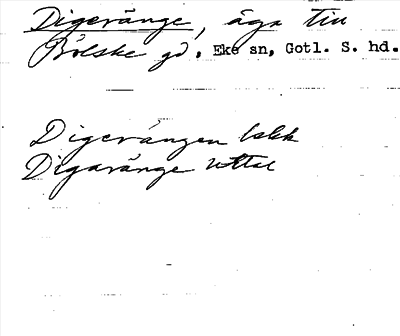 Digeränge, äga till
Bölske gd. Eke sn, Gotl. S. hd.
Digerängen lskk
Digaränge uttal